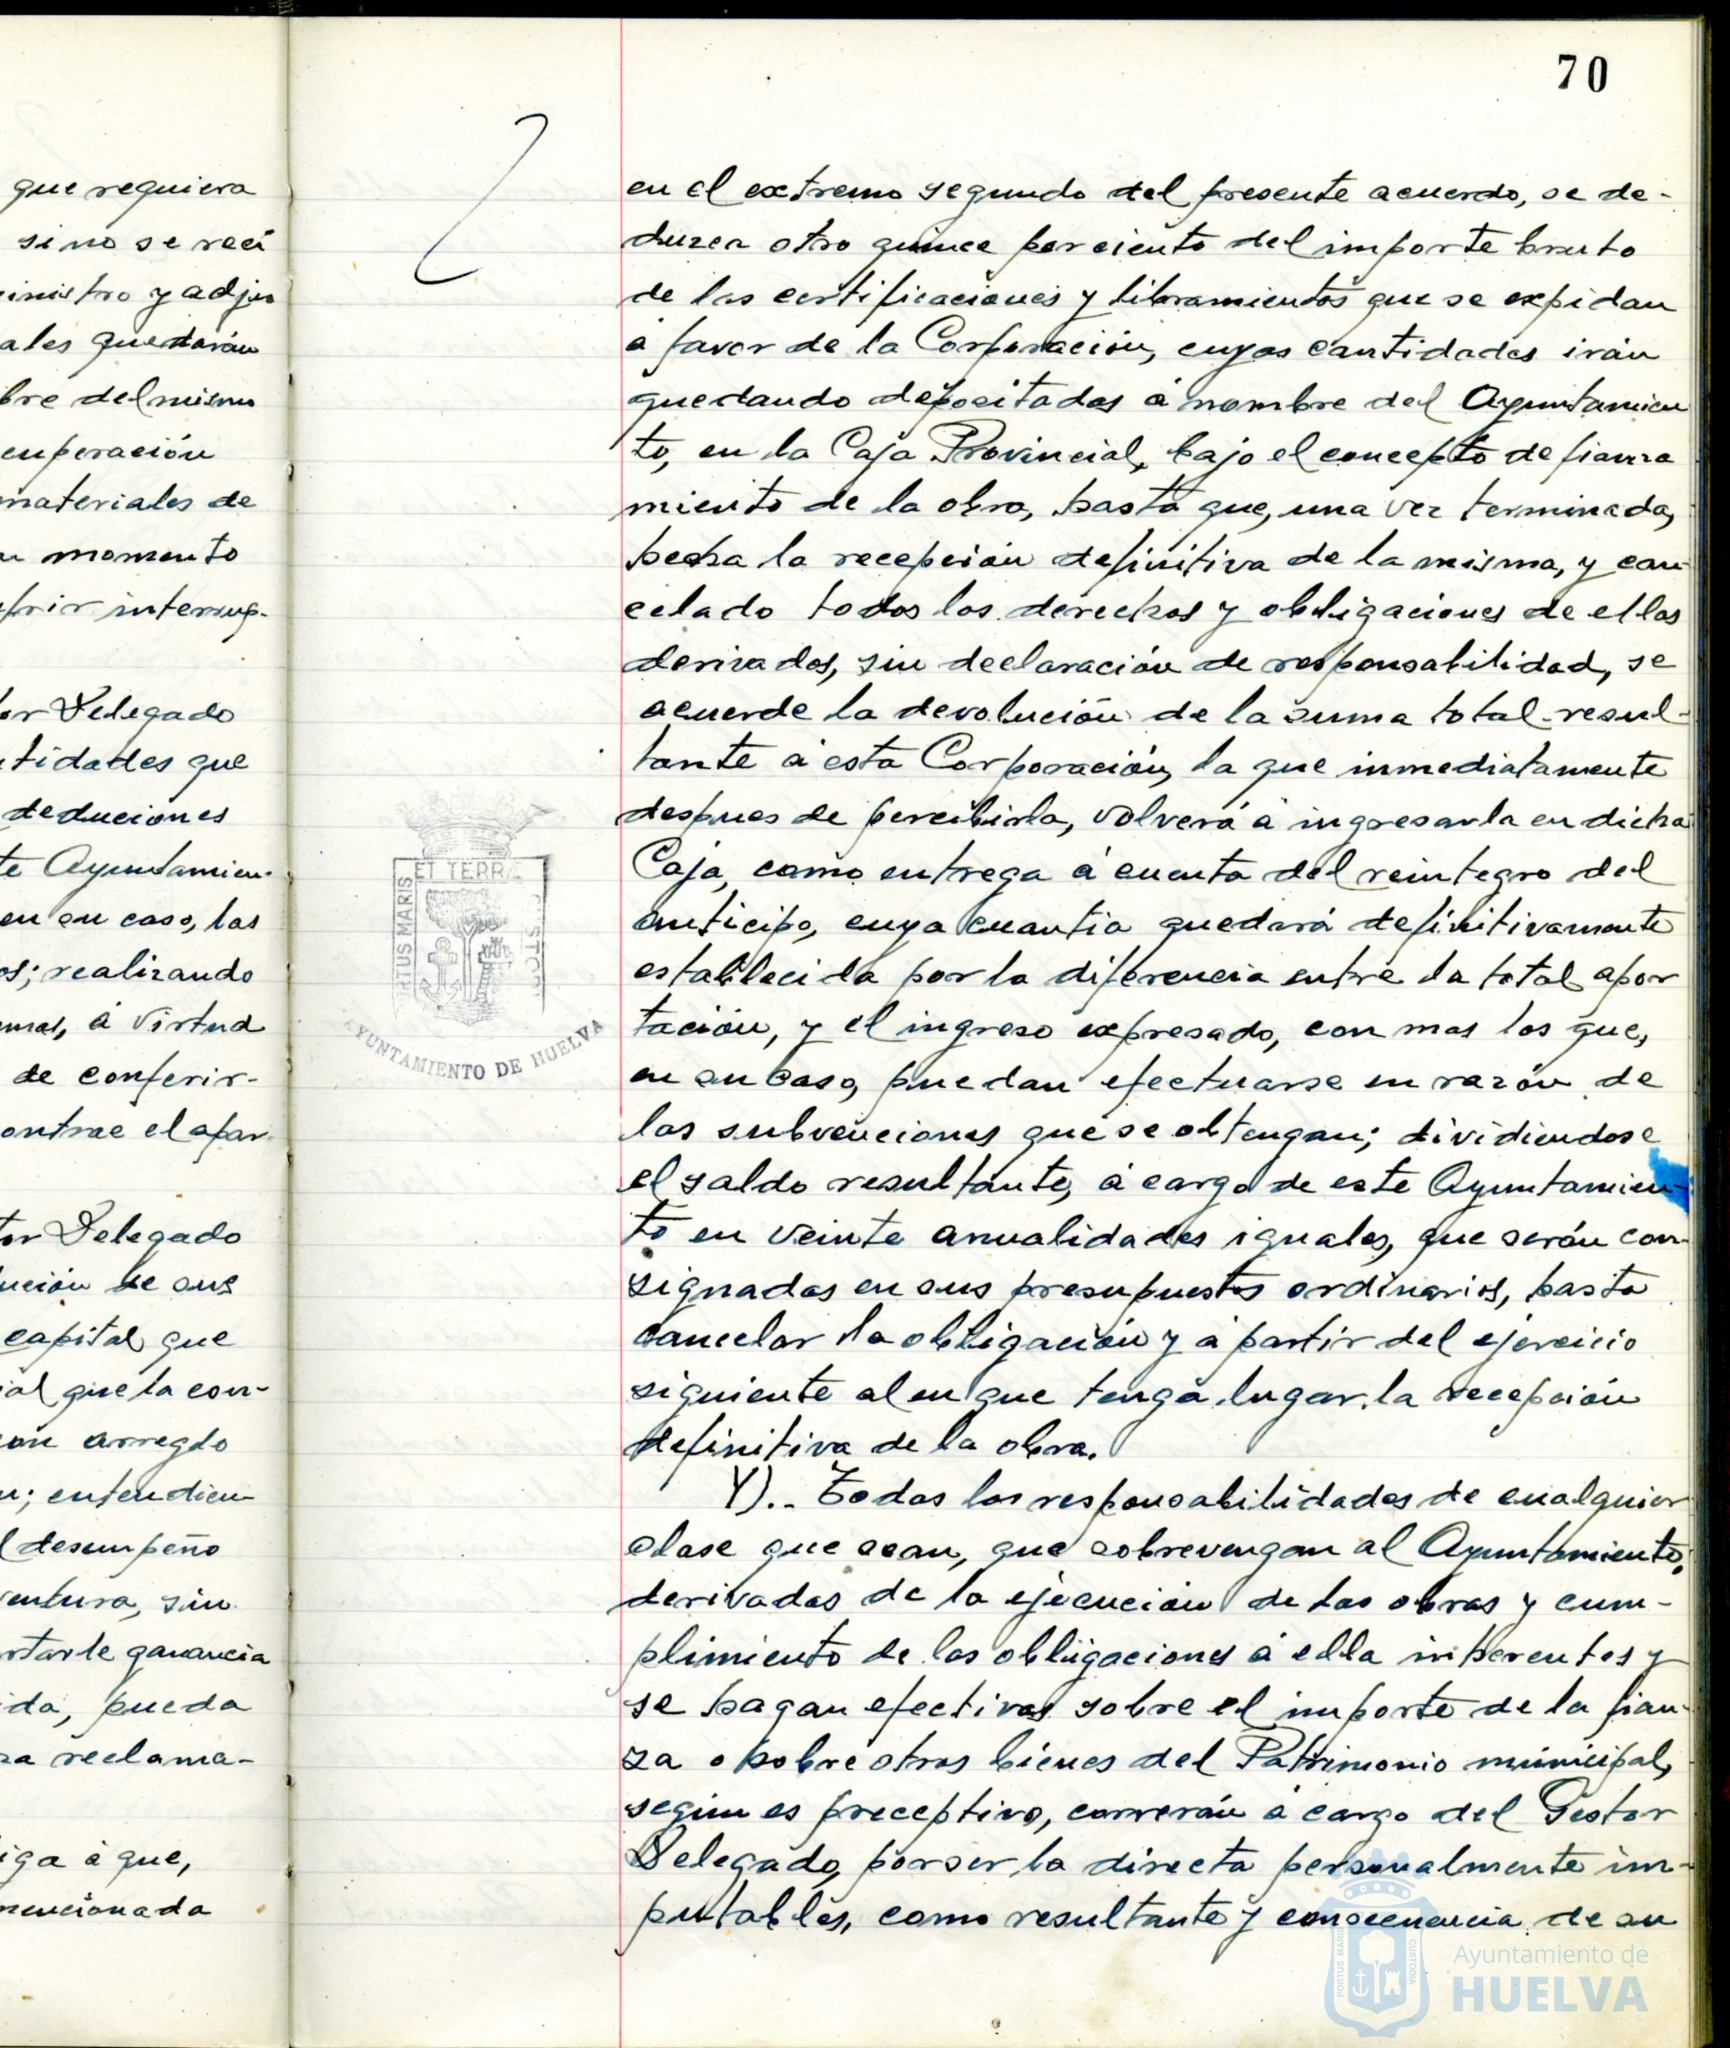 70
que requiera
si no se reci
inistro y adju
ales quedarán
bre del mismo
cuperación
materiales de
momento
frir interrup-
or Delegado
tidades que
deduciones
te Ayuntamien-
en su caso, las
os; realizando
mas, á virtud
de conferir-
ontrae el apar
tor Delegado
ución de sus
capital que
ial que la con-
on arreglo
n; entendien
l desempeño
ventura, sin
rtarle ganancia
ida, pueda
za reclama-
iga á que,
mencionada
en el extremo segundo del presente acuerdo, se de-
duzca otro quince por ciento del importe bruto
de las certificaciones y libramientos que se expidan
á favor de la Corporación, cuyas cantidades irán
quedando depositadas á nombre del Ayuntamien
to, en la Caja Provincial, bajo el concepto de fianza
miento de la obra, hasta que, una vez terminada,
hecha la recepción definitiva de la misma, y can
celado todos los derechos y obligaciones de ellas
derivados, sin declaración de responsabilidad, se
acuerde la devolución de la suma total resul-
tante á esta Corporación, la que inmediatamente
despues de percibirla, volverá á ingresarla en dicha
Caja, como entrega á cuenta del reintegro del
anticipo, cuya cuantia quedará definitivamente
establecida por la diferencia entre la total apor
tación, y el ingreso expresado, con mas los que,
en su caso, puedan efectuarse en razón de
las subvenciones que se obtengan; dividiendose
el saldo resultante, á cargo de este Ayuntamien-
to en veinte anualidades iguales, que serán con-
signadas en sus presupuestos ordinarios, hasta
cancelar la obligación y á partir del ejercicio
siguiente al en que tenga lugar la recepción
definitiva de la obra.
Y).- Todas las responsabilidades de cualquier
clase que sean, que sobrevengan al Ayuntamiento,
derivadas de la ejecución de las obras y cum-
plimiento de las obligaciones á ella inherentes y
se hagan efectivas sobre el importe de la fian-
za o sobre otros bienes del Patrimonio municipal,
según es preceptivo, correrán á cargo del Gestor
Delegado, por ser la directa personalmente im-
putables, como resultante y consecuencia de su
ET TERRA
PORTUS MARIS
CUSTODIA
AYUNTAMIENTO DE HUELVA
Ayuntamiento de
HUELVA